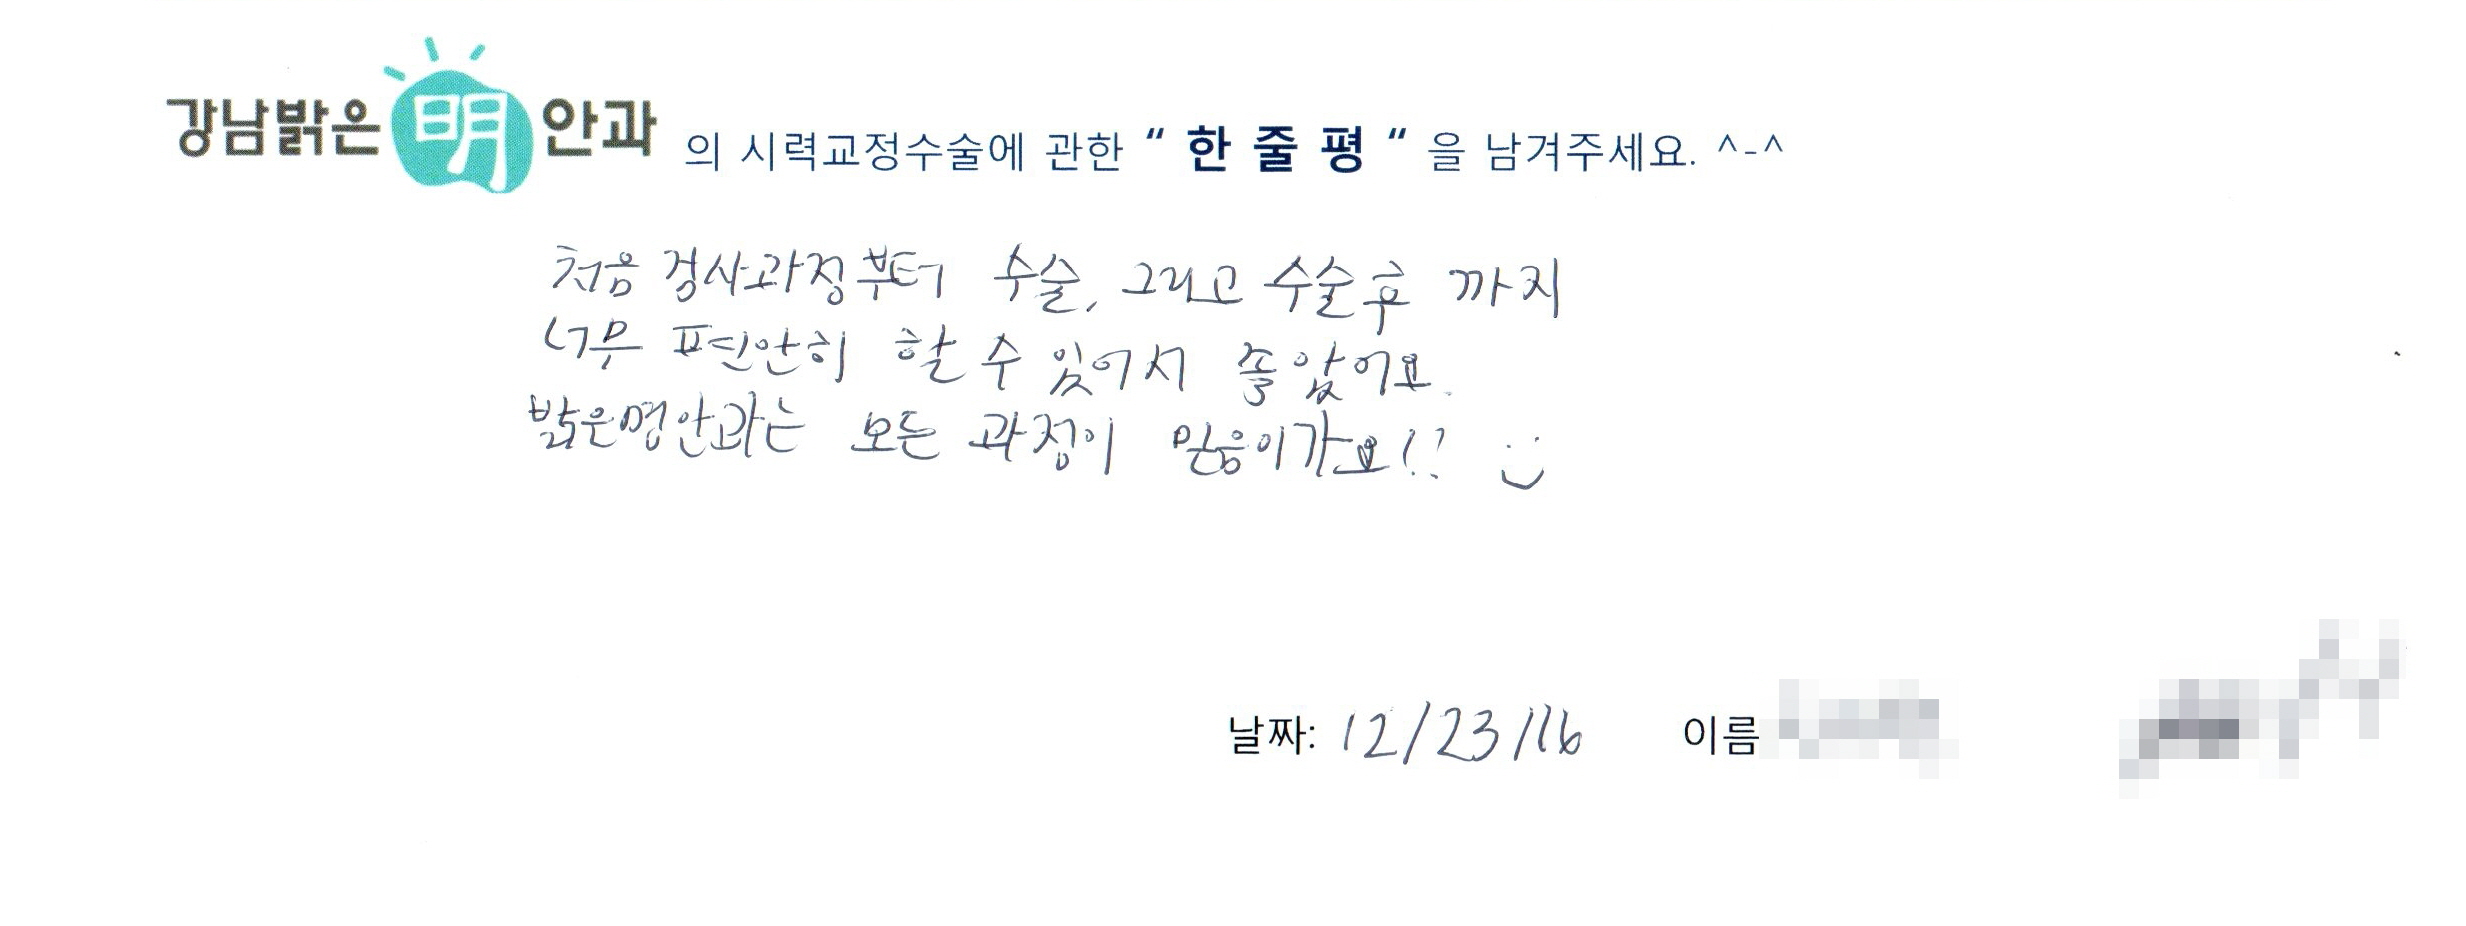 강남밝은明안과 의 시력교정수술에 관한 “ 한 줄 평 “ 을 남겨주세요. ^-^
처음 검사과정부터 수술, 그리고 수술후 까지
너무 편안히 할 수 있어서 좋았어요.
밝은명안과는 모든 과정이 믿음이가요!!
날짜: 12/23/16 이름